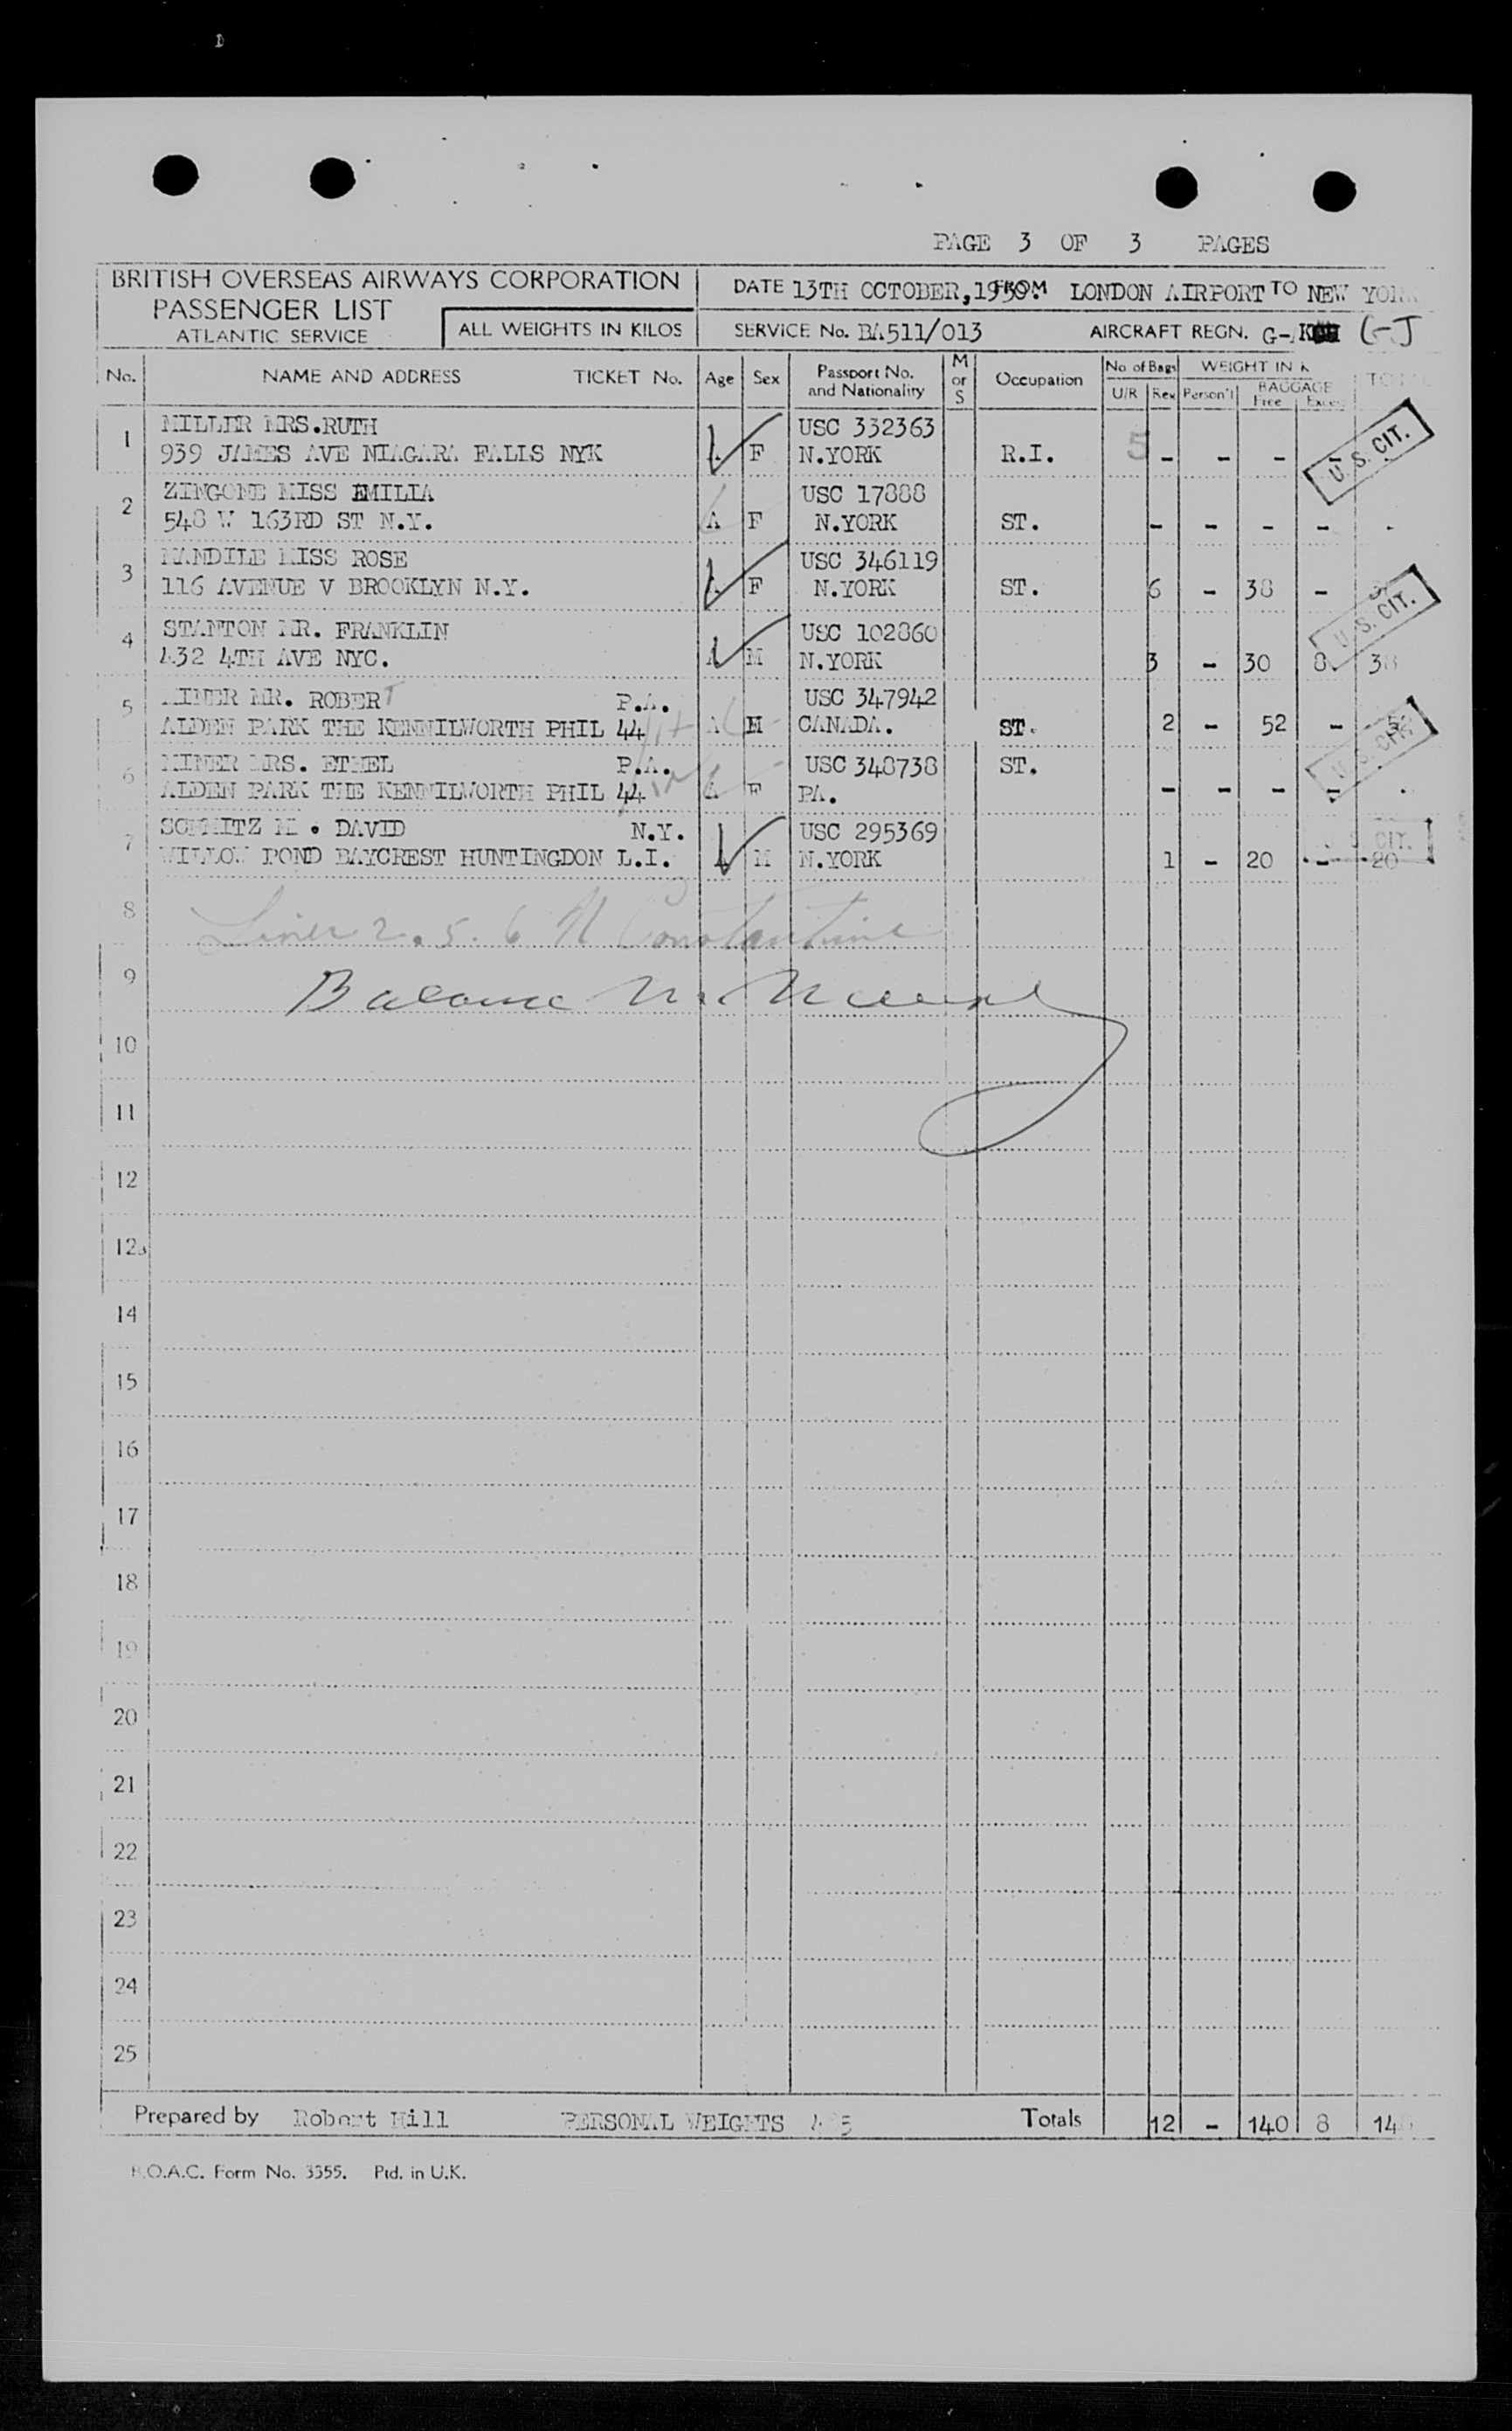 PAGE 3 OF 3 PAGES
BRITISH OVERSEAS AIRWAYS CORPORATION
PASSENGER LIST
ATLANTIC SERVICE
ALL WEIGHTS IN KILOS
DATE 13TH OCTOBER, FROM LONDON AIRPORT TO NEW YORK
SERVICE No. BA511/013 AIRCRAFT REGN. G- G-J
No. NAME AND ADDRESS TICKET No. Age Sex Passport No. and Nationality M or S Occupation No of Bags U/R Rex WEIGHT IN K Person'l BAGGAGE Free Excess
1 MILLER MRS.RUTH USC 332363
939 JAMES AVE NIAGARA FALLS NYK A F N.YORK R.I. 5 - - - -
U. S. CIT.
2 ZINGONE MISS EMILIA USC 17888
548 W 163RD ST N.Y. A F N.YORK ST. - - - - -
3 MANDILE MISS ROSE USC 346119
116 AVENUE V BROOKLYN N.Y. A F N.YORK ST. 6 - 38 -
U. S. CIT.
4 STANTON MR. FRANKLIN USC 102860
432 4TH AVE NYC. A M N.YORK 3 - 30 8. 38
5 MINER MR. ROBERT P.A. USC 347942
ALDEN PARK THE KENNILWORTH PHIL 44 A M CANADA. ST. 2 - 52 -
U. S. CIT.
6 MINER MRS. ETHEL P.A. USC 348738 ST.
ALDEN PARK THE KENNILWORTH PHIL 44 A F PA. - - - - .
7 SCHMITZ M . DAVID N.Y. USC 295369
WILLOW POND BAYCREST HUNTINGDON L.I. A M N.YORK 1 - 20 - 20
U S CIT.
8 Lines 2. 5. 6 N Constantine
9 Balance
10
11
12
12a
14
15
16
17
18
19
20
21
22
23
24
25
Prepared by Robert Hill PERSONAL WEIGHTS Totals 12 - 140 8
B.O.A.C. Form No. 3355. Ptd. in U.K.